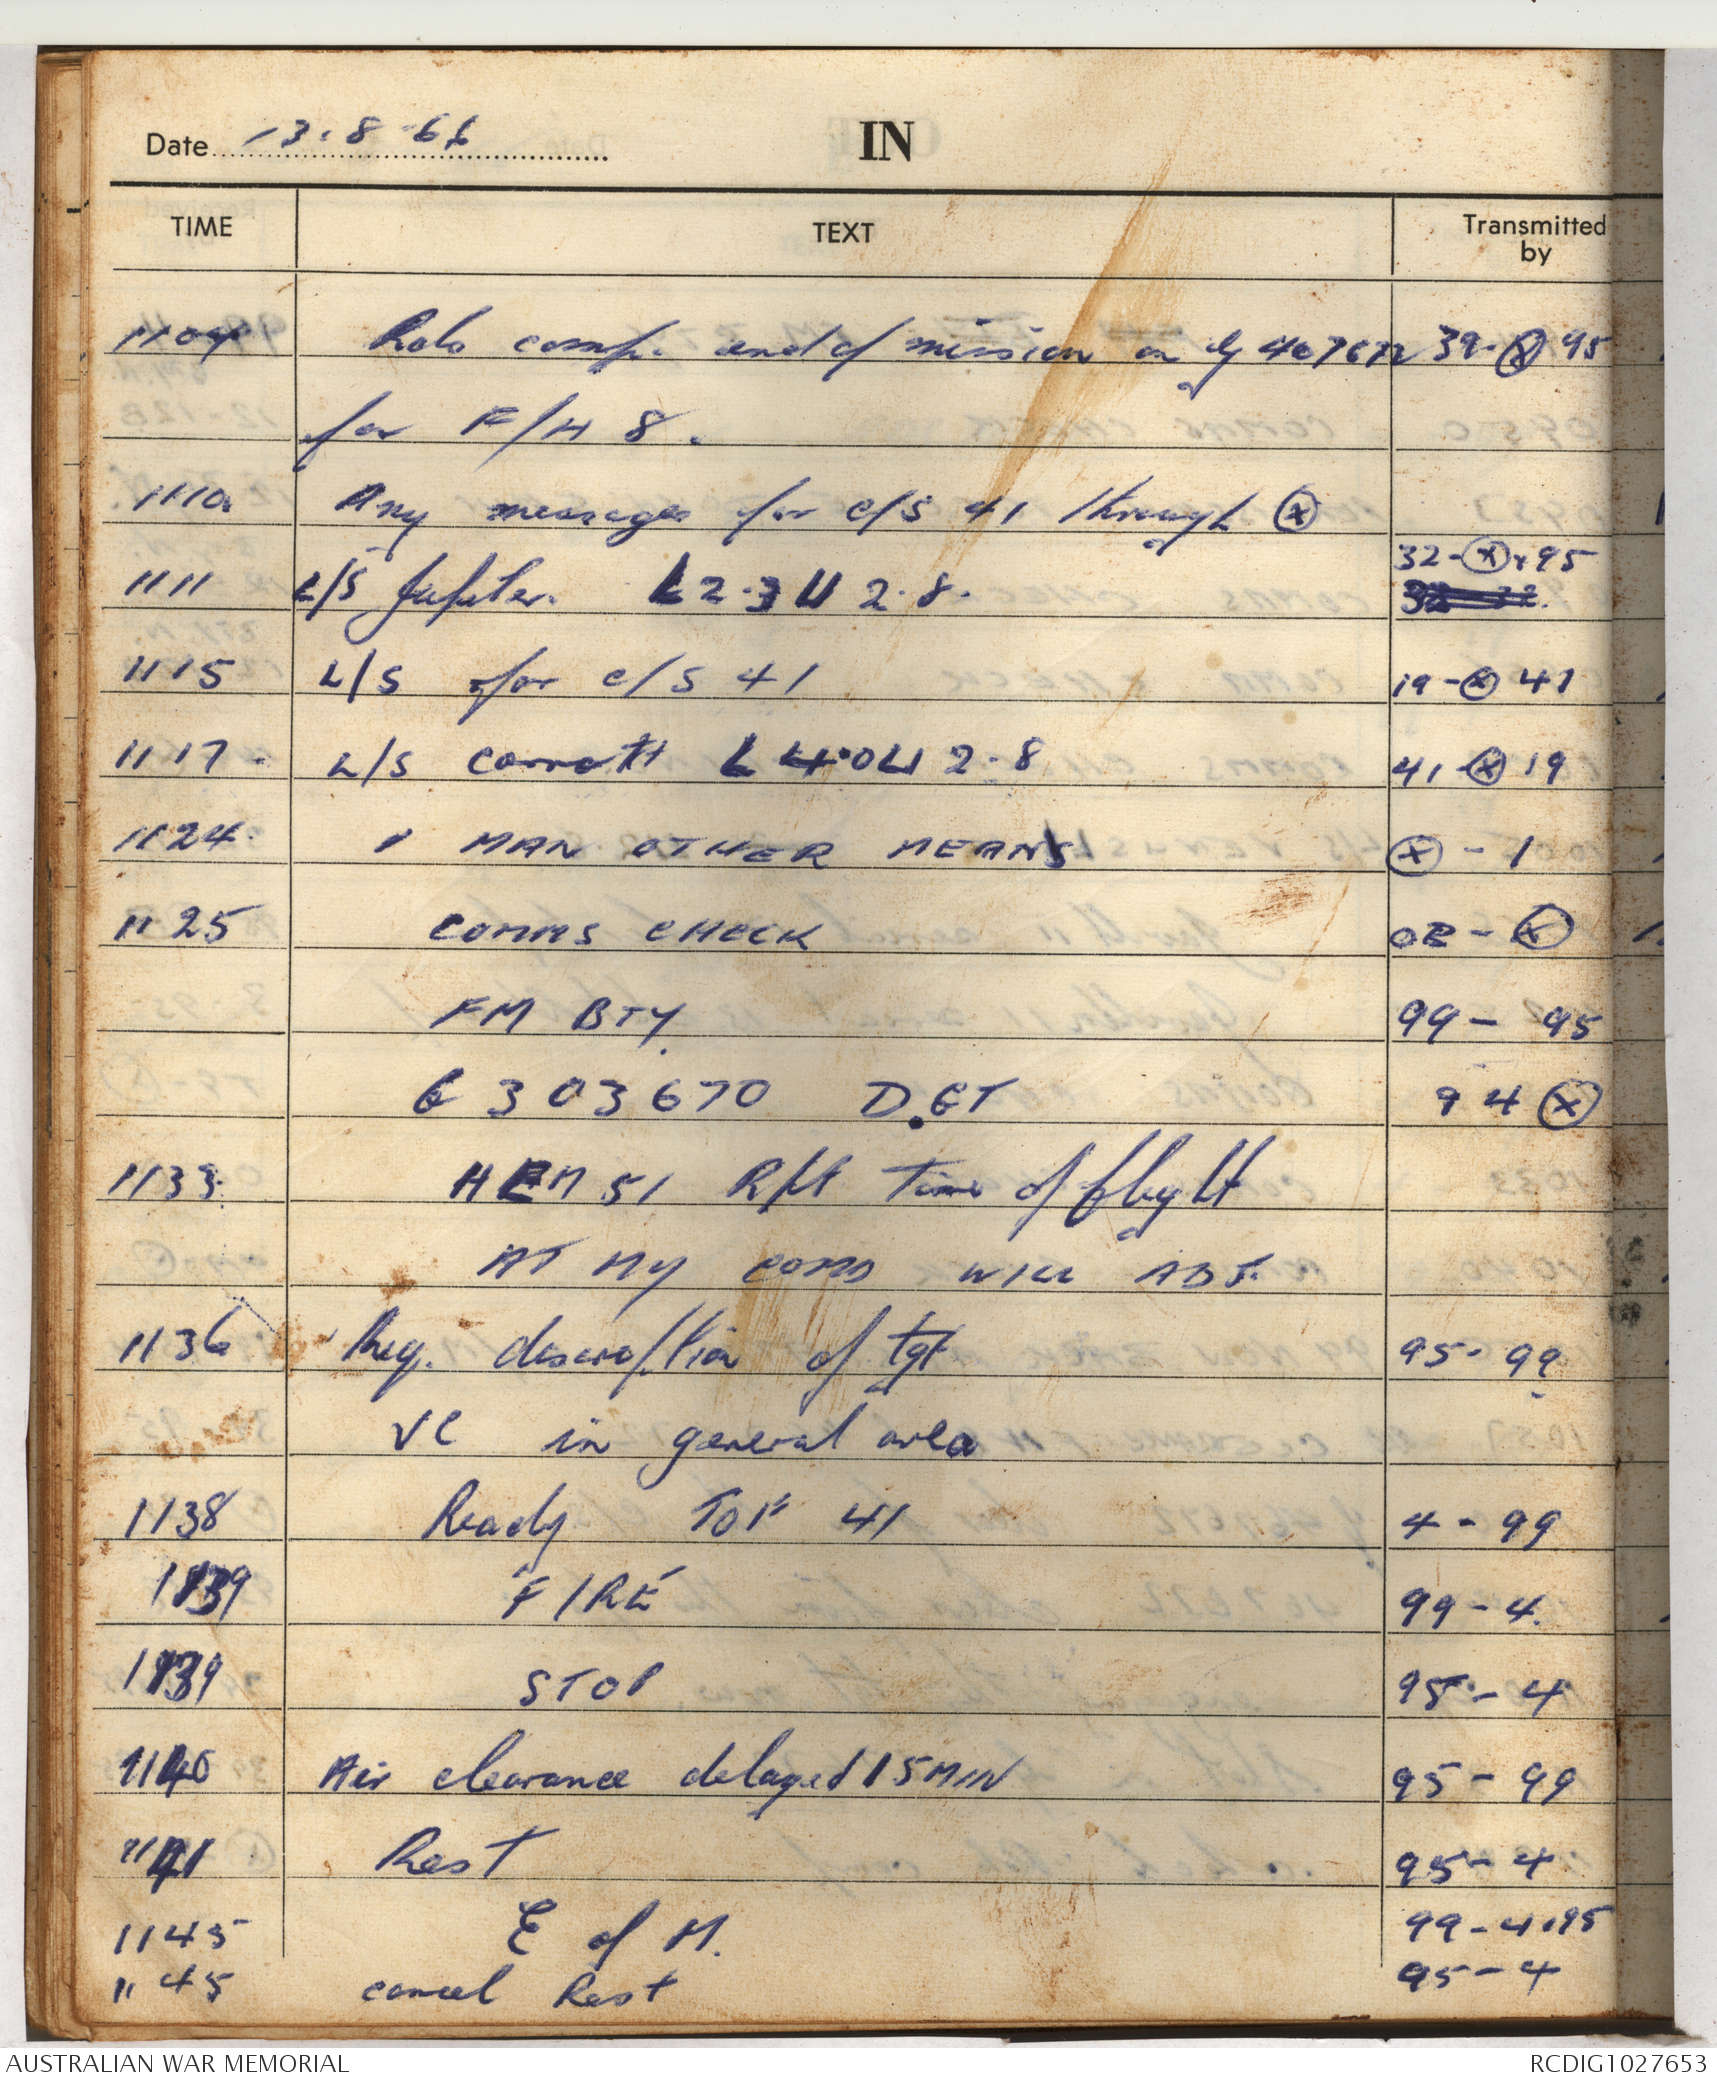 Date 13.8.66
IN
TIME TEXT Transmitted by
1104 Robo comp. end of mission on 407672 39-ⓧ 95
for F/H 8.
1110 Any messages for c/S 41 through ⓧ
32-ⓧ,95
1111 L/S Jupiter. L2.3 U 2.8.
1115 L/S for c/S 41 19-ⓧ 41
1117. L/S L4.0 U 2.8 41-ⓧ 19
1124. 1 MAN OTHER MEANS ⓧ-1
1125 COMMS CHECK ⓧ
FM BTY. 99- 95
G 303670 DET 94 ⓧ
1133. 51 R/A Time of flight
AT MY COMD WILL ADJ.
1136 Req. description of tgt 95-99
VC in general area
1138 Ready TOF 41 4-99
1139 FIRE 99-4.
1139 STOP 95-4
1140 Air clearance delayed 15 MIN 95-99
1141 Rest 95-4
1145 E of M. 99-4,95
1145 cancel Rest 95-4
AUSTRALIAN WAR MEMORIAL RCDIG1027653